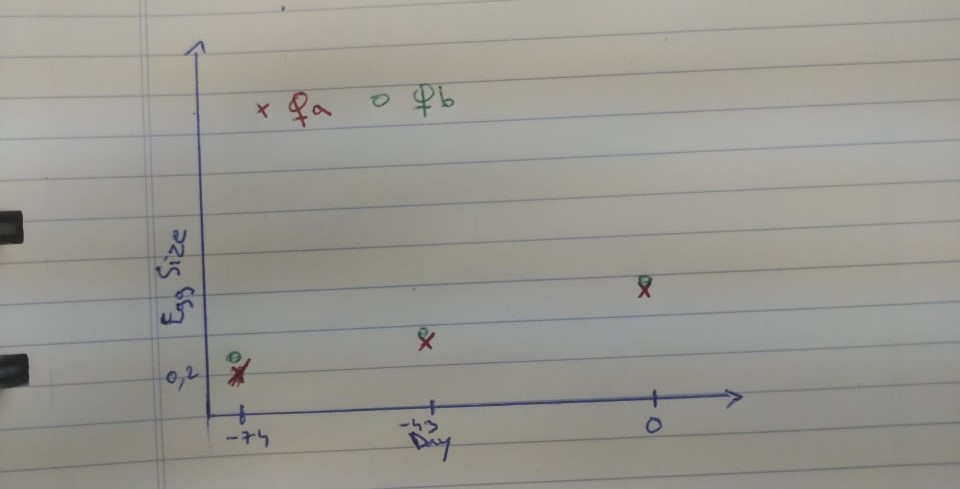 x ♀a o ♀b
Egg Size
0,2
-74 -43 0
Day